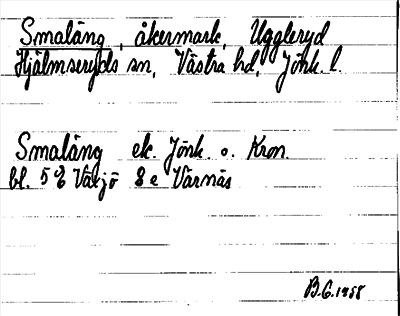 Smaläng, åkermark, Uggleryd
Hjälmseryds sn, Västra hd, Jönk. l.
Smaläng ek. Jönk. o. Kron.
bl. 5 Växjö 8 e Värnäs
B.G. 1958